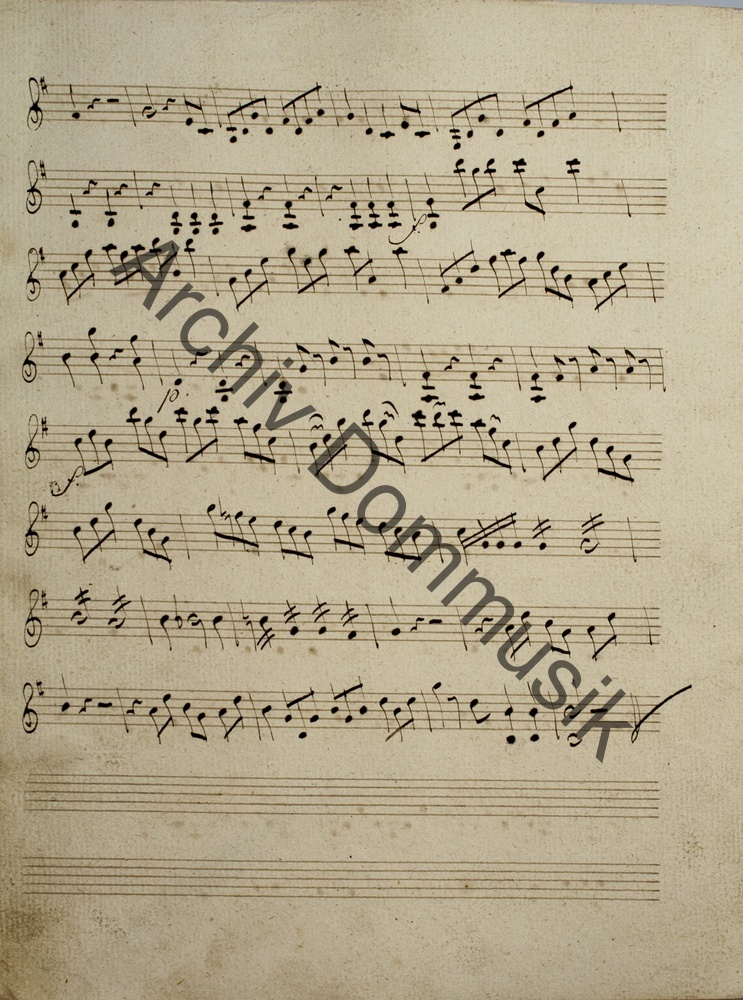 f.
p.
f.
Archiv Dommusik